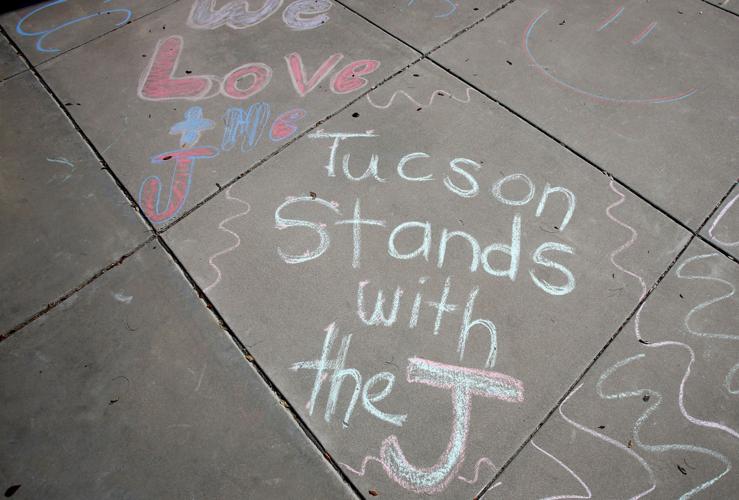 We
Love
the
J
Tucson
Stands
with
the J